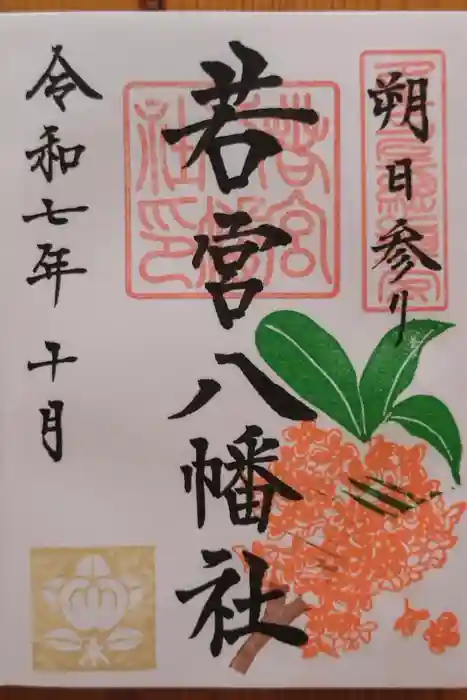 朔日参り
若宮八幡社
令和七年十月